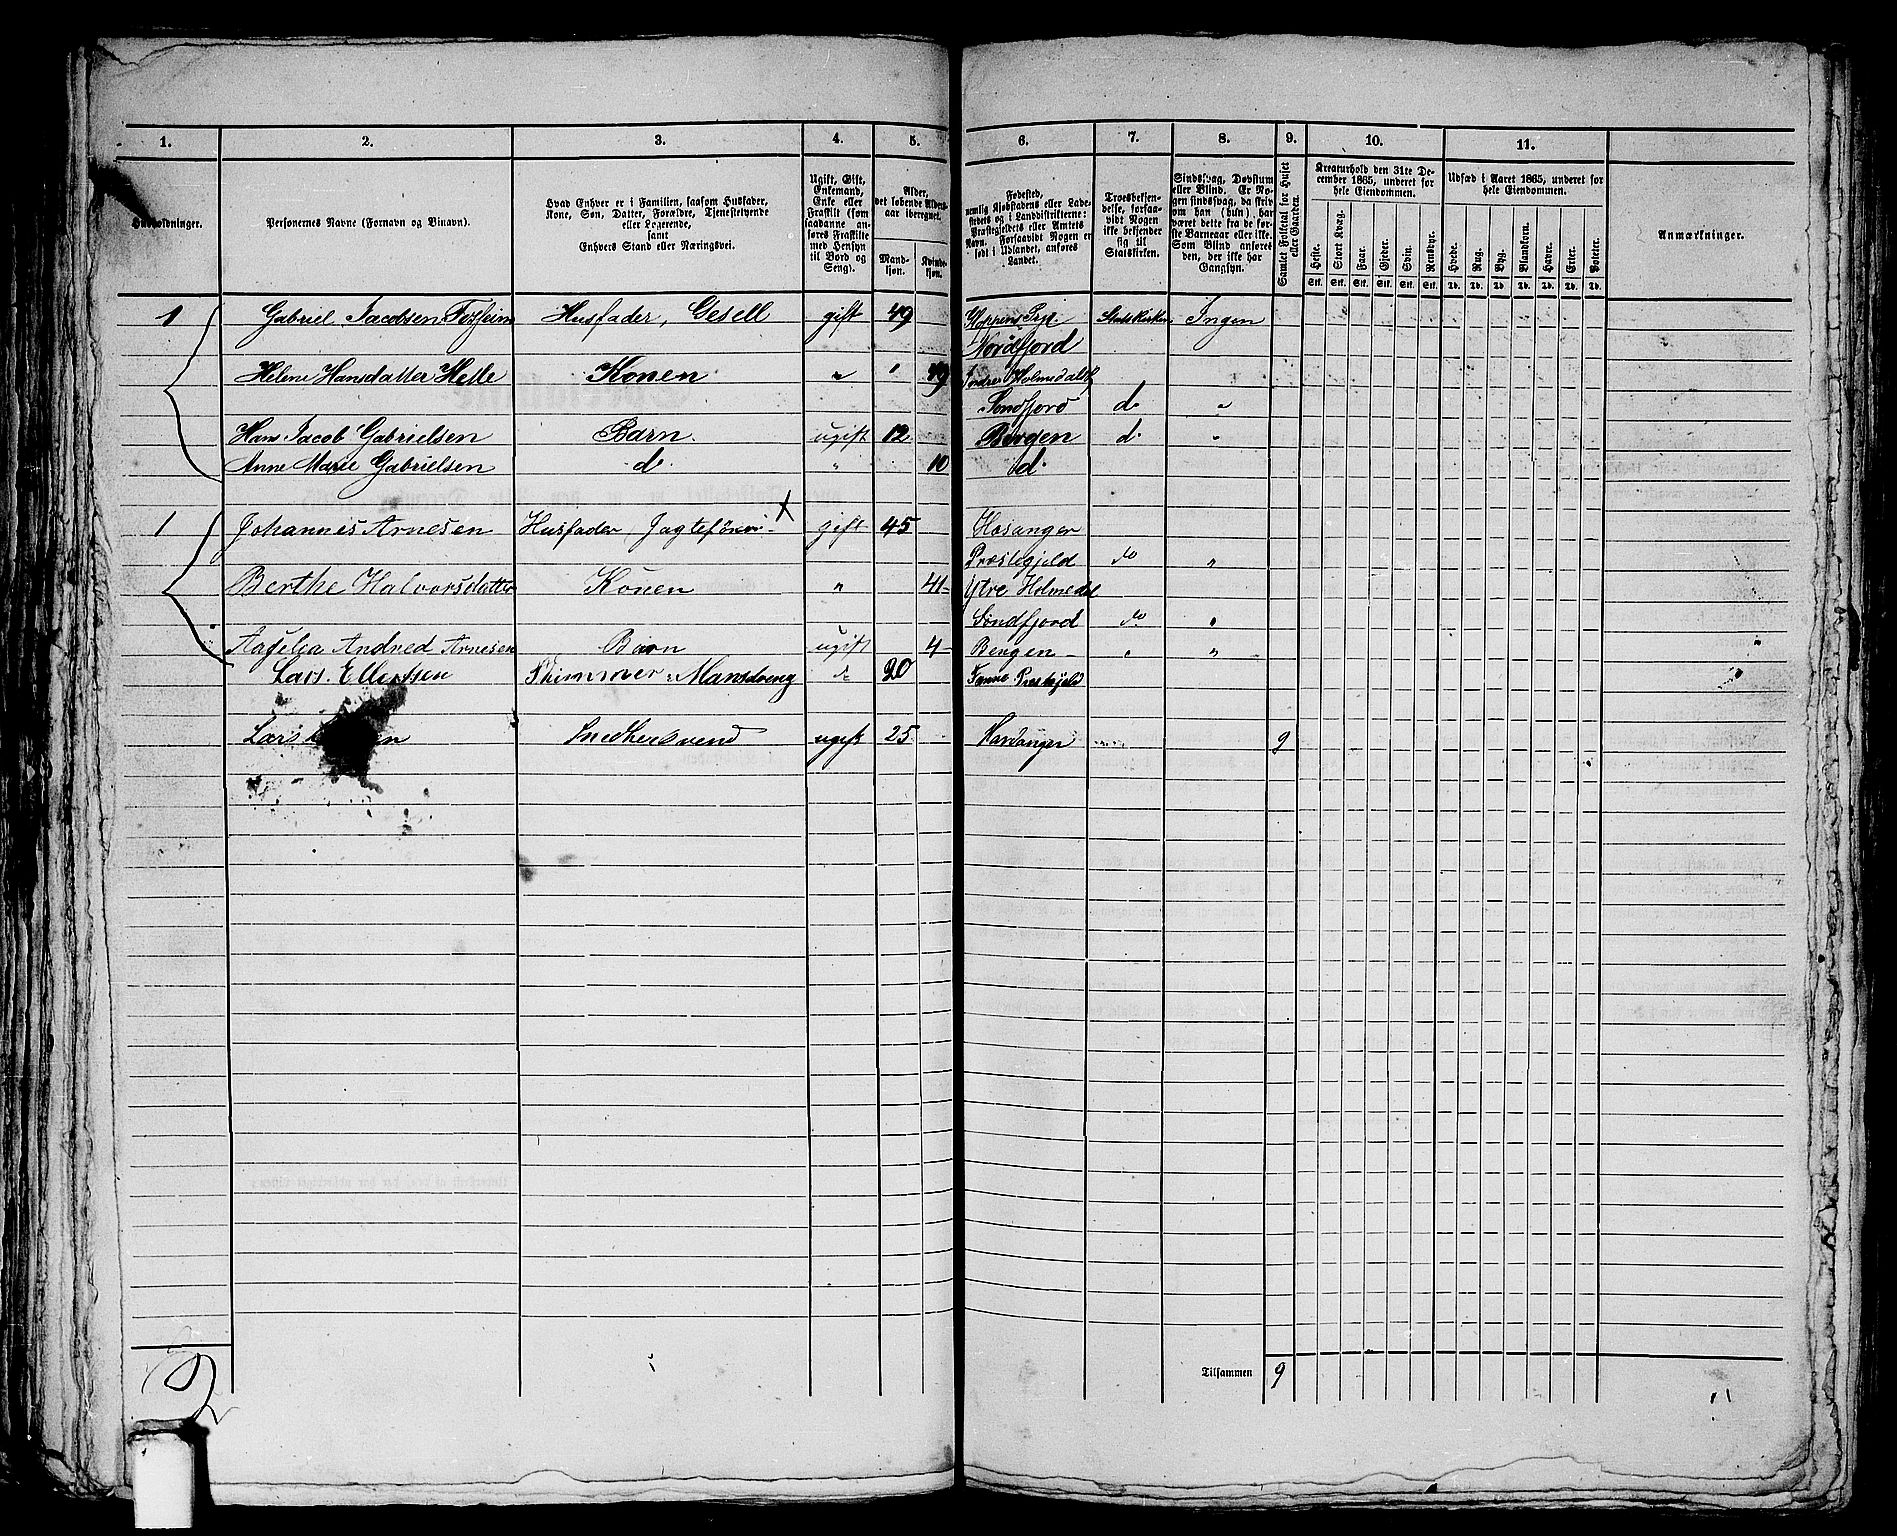 1. 2. 3. 4. 5. 6. 7. 8. 9. 10. 11.
Husholdninger.
Personernes Navne (Fornavn og Binavn).
Hvad Enhver er i Familien, saasom Husfader,
Kone, Søn, Datter, Forældre, Tjenestetyende
eller Logerende,
samt
Enhvers Stand eller Næringsvei.
Ugift, Gift,
Enkemand,
Enke eller
Fraskilt (som
saadanne an-
føres Fraskilte
med Hensyn
til Bord og
Seng).
Alder,
det løbende Alders-
aar iberegnet.
Mand-
kjøn.
Kvinde-
kjøn.
Fødested,
nemlig Kjøbstadens eller Lade-
stedets og i Landdistrikterne:
Præstegjeldets eller Amtets
Navn. Forsaavidt Nogen er
født i Udlandet, anføres
Landet.
Troesbekjen-
delse, forsaa-
vidt Nogen
ikke bekjender
sig til
Statskirken.
Sindssvag, Døvstum
eller Blind. Er No-
gen sindssvag, da skriv
om han (hun) har
været dette fra de før-
ste Barneaar eller ikke.
Som Blind anføres
den, der ikke har
Gangsyn.
Samlet Folketal for Huset
eller Gaarden.
Kreaturhold den 31te De-
cember 1865, underet for
hele Eiendommen.
Heste. Stort Kvæg. Faar. Gjeder. Svin. Rensdyr.
Stk. Stk. Stk. Stk. Stk. Stk.
Udsæd i Aaret 1865, underet for
hele Eiendommen.
Hvede. Rug. Byg. Blandkorn. Havre. Erter. Poteter.
Td. Td. Td. Td. Td. Td. Td.
Anmærkninger.
1 Gabriel Jacobsen Husfader, Gesell gift 49 Statskirken Ingen
Nordfjord
Helene Hansdatter Helle Konen " " 49 Indre Holmedals
Sondfjord d. "
Hans Jacob Gabrielsen Barn. ugift 12 Bergen d. "
Anne Marie Gabrielsen d. " 10 d.
1 Johannes Arnesen Husfader X gift 45 Hosanger
Præstegjeld do "
Berthe Halvorsdatter Konen " 41 Ytre Holmedal
Søndfjord do "
Andrea Arnesen Barn ugift 4 Bergen " "
Lars Ellertsen d. 20 Præstegjeld
Lars Snedkersvend ugift 25 Hardanger 9
Tilsammen 9